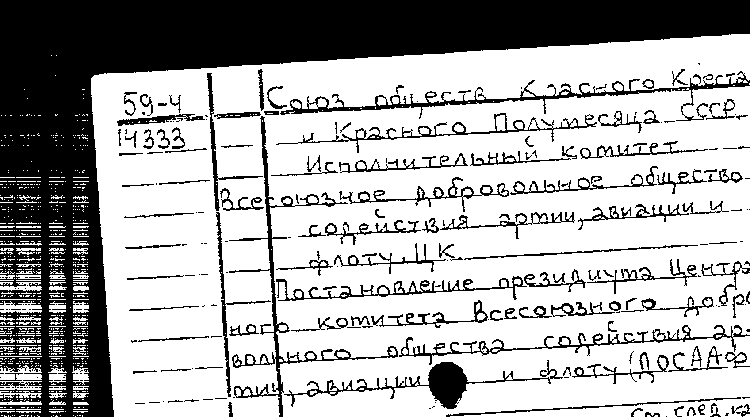 59-4 Союз обществ Красного Креста
14333 и Красного Полумесяца СССР.
Исполнительный комитет
Всесоюзное добровольное общество
содействия армии, авиации и
флоту. ЦК
Постановление президиума Центра
ного комитета Всесоюзного добро
вольного общества содействия ар-
мии, авиации и флоту (ДОСААФ
См. след. ка